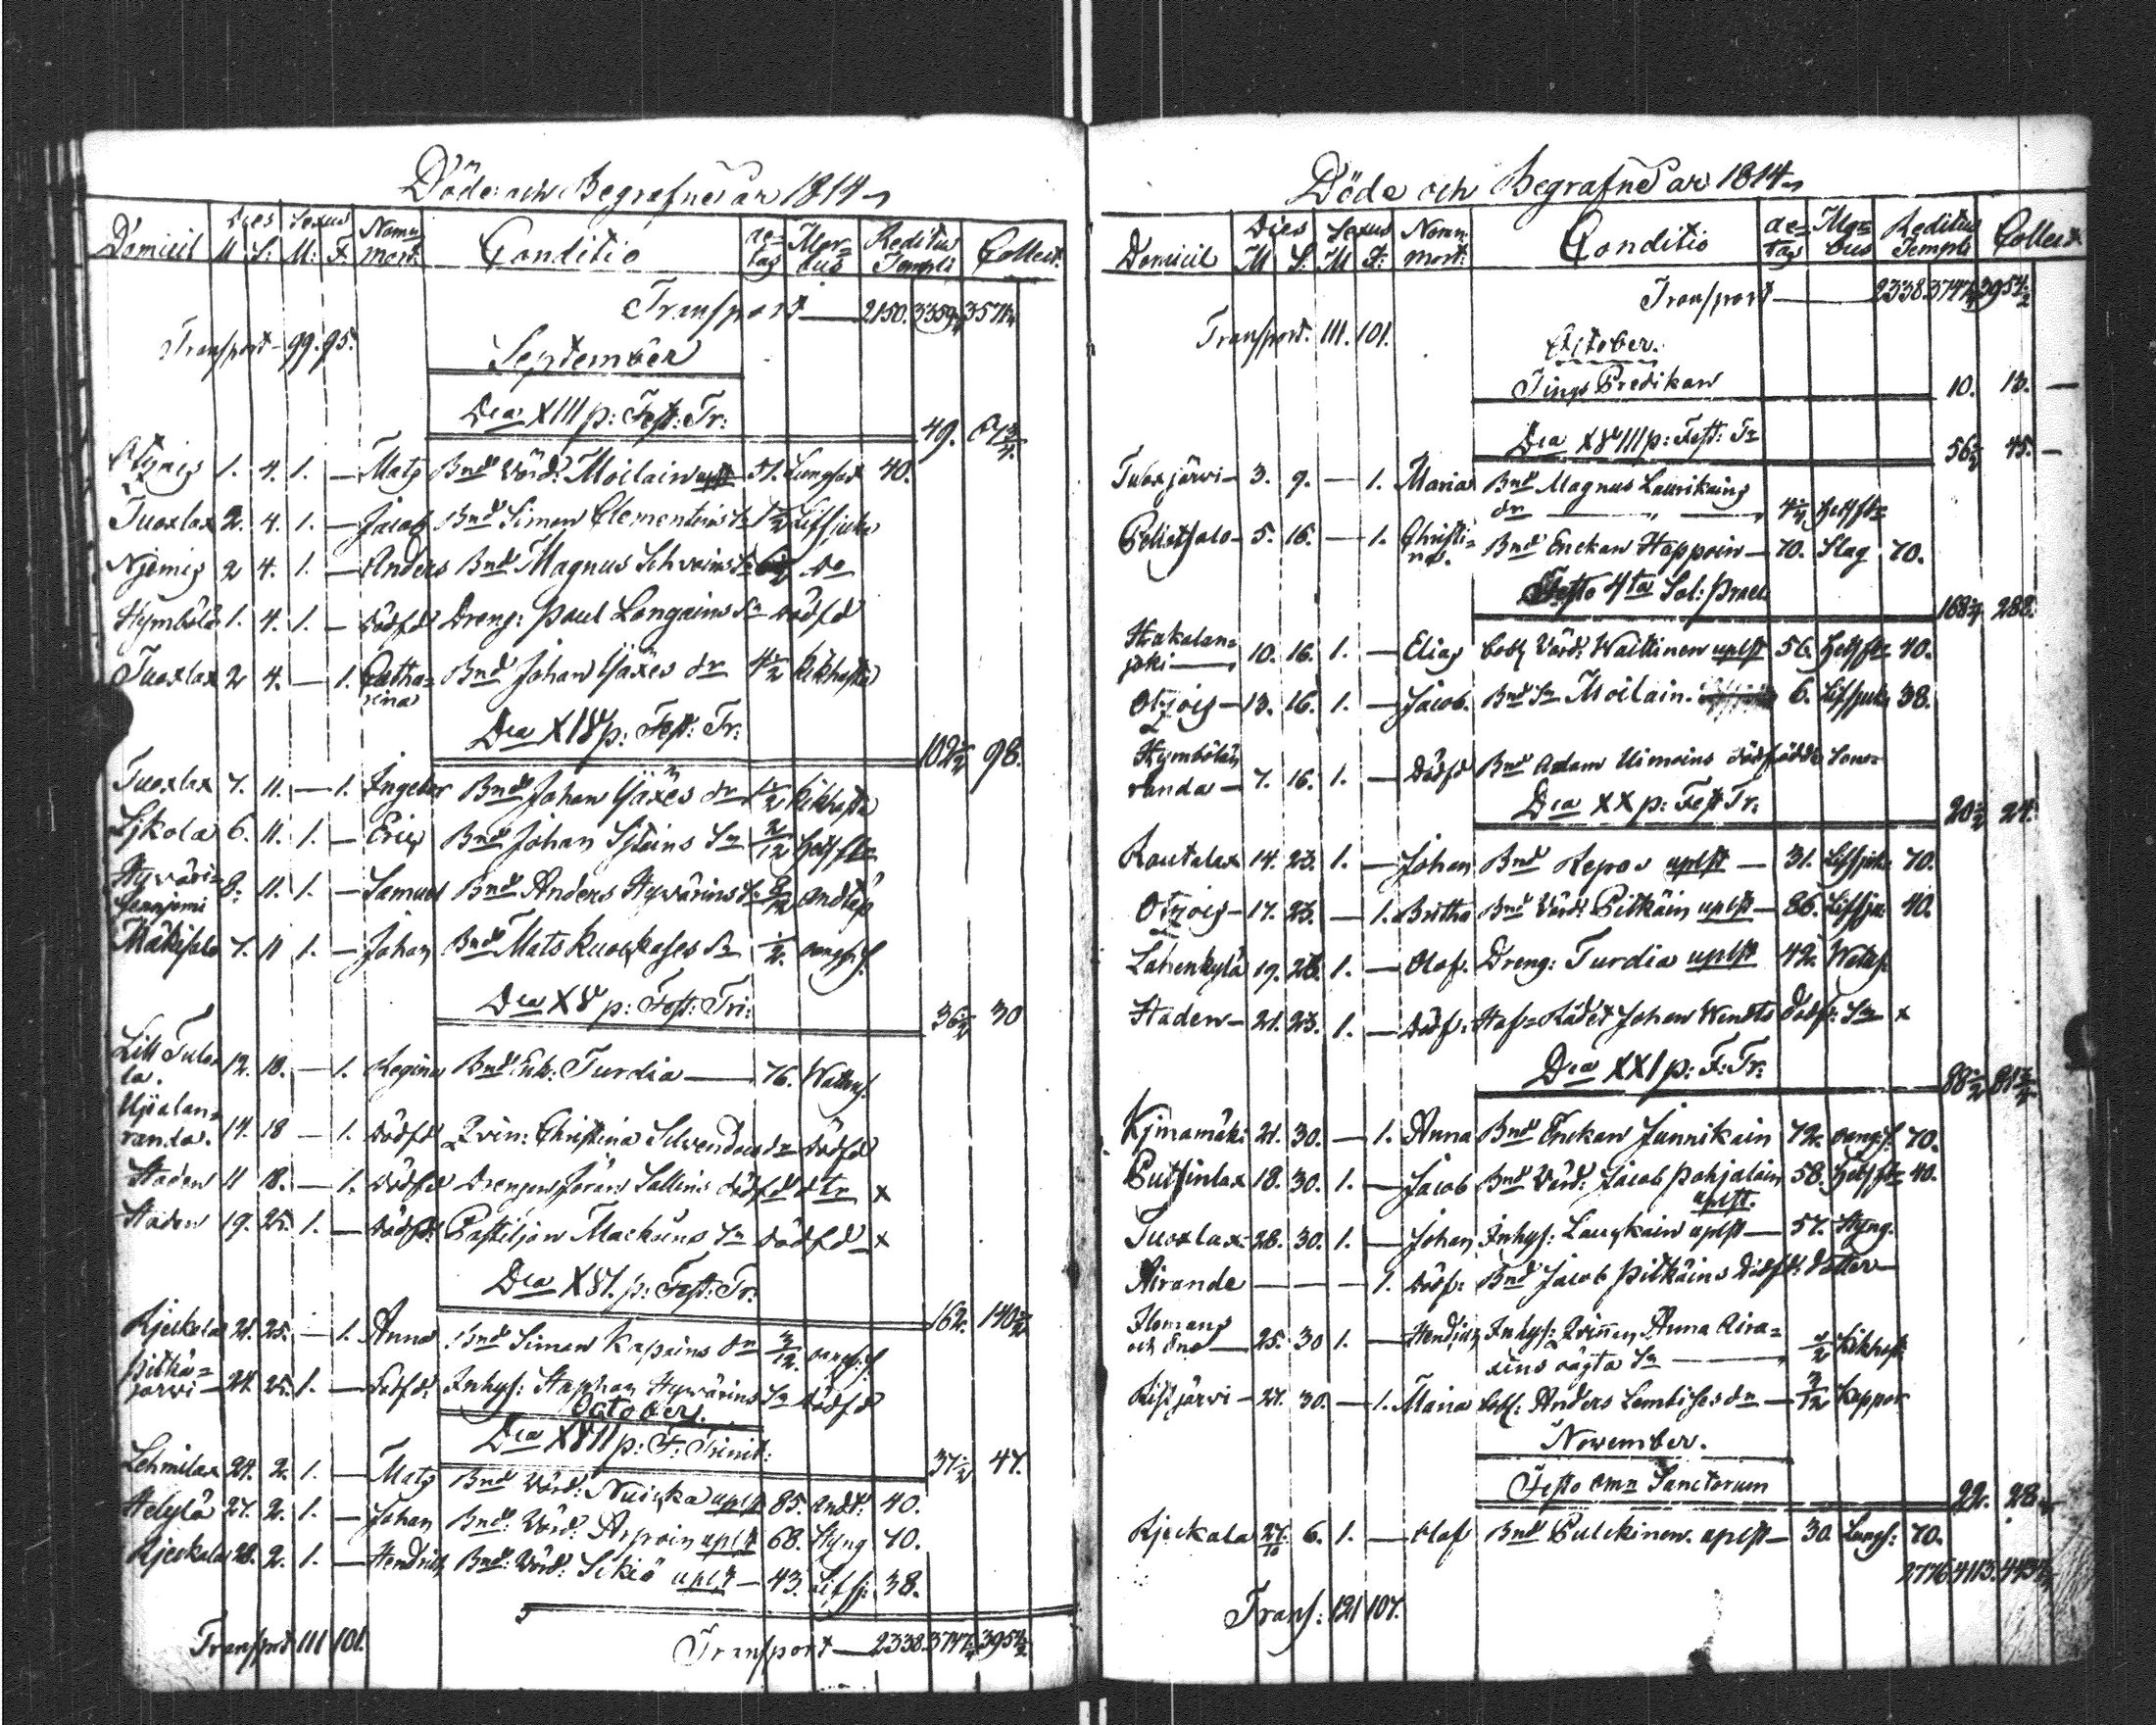 Döde och Begrafne år 1814
Domicil Dies Sexus Nomn Conditio ae= Mor= Reditus Collect.
M S: M: F mort: tas bus Templi
Transport 2150. 3359 3571
Transport 99. 95.
September
Dca XIII p: Fest: Tr:
49.
1. 4. 1. — Mats Bnd Värd: Moilain uplst 51. Lungsot 40.
Tuoxlax 2. 4. 1. — Jacob Bnd Simon Clementeins Sn Lifsjuka
Njemis 2 4. 1. — Anders Bnd Magnus Schveins Sn Do
Hymbölä 1. 4. 1. — Dödfd Dreng: Paul Longains Sn Dödfd
Tuoxlax 2 4. — 1. Catha= Bnd Johan Yäxes dr 4½ kikhosta
rina
Dca XIV p: Fest: Tr:
102½ 98.
Tuoxlax 7. 11. — 1. Ingebor Bnd Johan Yäxes dr ½ kikhosta
Sjkola 6. 11. 1. — Eric Bnd Johan Sjkeins Sn 2/12 Hetsf
Hyväri= 8. 11. 1. — Samuel Bnd Anders Hyvärins Sn 8/12 andtäp
Mäkisalo 7. 11 1. — Johan Bnd Mats Sn ½. oangif.
Dca XV p: Fest: Tri:
36½ 30
Lill Tulo=
la. 12. 18. — 1. Regina Bnd Enk: Turdia — 76. Wattus.
Ujialan=
randa. 14. 18 — 1. Dödfd Qvin: Christina Silvendoin dr Dödfd
Staden 11 18. — 1. Dödfd Drengen Jöran Sallins dödfd dtr x
Staden 19. 25. 1. — Dödfd Postiljon Mackéns Sn dödfd x
Dca XVI. p: Fest: Tr:
162. 140½
Rjeckala 21. 25. — 1. Anna Bnd Simon Kapains dr 3/12. oangif.
Pitkä=
järvi — 24. 25. 1. — Dödfd: Inhys: Staphan Hyvärins Sn dödfd
October.
Dca XVII p: F: Trinit:
37½ 47.
Lehmilax 24. 2. 1. — Mats Bnd Värd: uplst 85. andt: 40.
Helylä 27. 2. 1. — Johan Bnd: Värd: Arpoin uplst 68. Styng 70.
Rjeckala 28. 2. 1. — Hendrich Bnd: Värd: Sikiö uplst — 43. Lifsj: 38.
Transport 111 101. Transport — 2338. 3747 3954½
Döde och Begrafne år 1814
Domicil Dies Sexus Nomn. Conditio ae= Mor= Reditus Collect
M S: M F: mort: tas bus Templi
Transport — 2338. 3747 3954½
Transport. 111. 101.
October.
Tings Predikan
10. 13. —
Dca XVIII p: Fest: Tr
56½ 45. —
Tuloxjärvi — 3. 9. — 1. Maria Bnd Magnus Laurikains
dr — Hetsf
5. 16. — 1. Christi=
na. Bnd Enckan Happoin — 70. Slag 70.
Festo 4ta Sol: Prael
168 288.
Hakalan=
joki — 10. 16. 1. — Elias Lobg Värd: Waittinen uplst 56. Hetsf 40.
Otzois — 13. 16. 1. — Jacob. Bnd Sn Moilain. 6. Lifsjuk 38.
Hymbölän
randa — 7. 16. 1. — Dödfd Bnd Adam Uimoins dödfödde Son
Dca XX p: Fest Tr:
20½ 24.
Rautalax 14. 23. 1. — Johan Bnd Repos uplst — 31. Lifsjuk 70.
Otzois — 17. 23. — 1. Britha Bnd Värd: Pitkäin uplst — 86. Lifsju: 40.
Lahenkylä 19. 23. 1. — Olof. Dreng: Turdia uplst 42. Wattus
Staden — 21. 23. 1. — Dödf: Hof=Rådet Johan Wendts Dödf: Sn x
Dca XXI p: F: Tr:
88½
Kjmamäki 21. 30. — 1. Anna Bnd Enckan Junnikain 72. oangif. 70.
Putsinlax 18. 30. 1. — Jacob Bnd Värd: Jacob Pohjalain 58. Hetsf 40.
uplst.
Tuoxlax. 28. 30. 1. — Johan Inhys: Lauskain uplst — 57. Styng.
Airanda — — — 1. Dödf: Bnd Jacob Pitkäins Dödfd: dotter
Ilomans
25. 30 1. — Hendrich Inhys: Qvinnan Anna Aira=
xins oägta Sn — ½ kikhost
Ristjärvi — 27. 30. — 1. Maria Lobg: Anders Lembises dr — 3/12 koppor
November.
Festo Omn Sanctorum
22. 28
Rjeckala 27/10 6. 1. — Olof Bnd Pulckinen. uplst — 30. Lungs: 70.
2776 4113. 4434
Transp: 121 107.